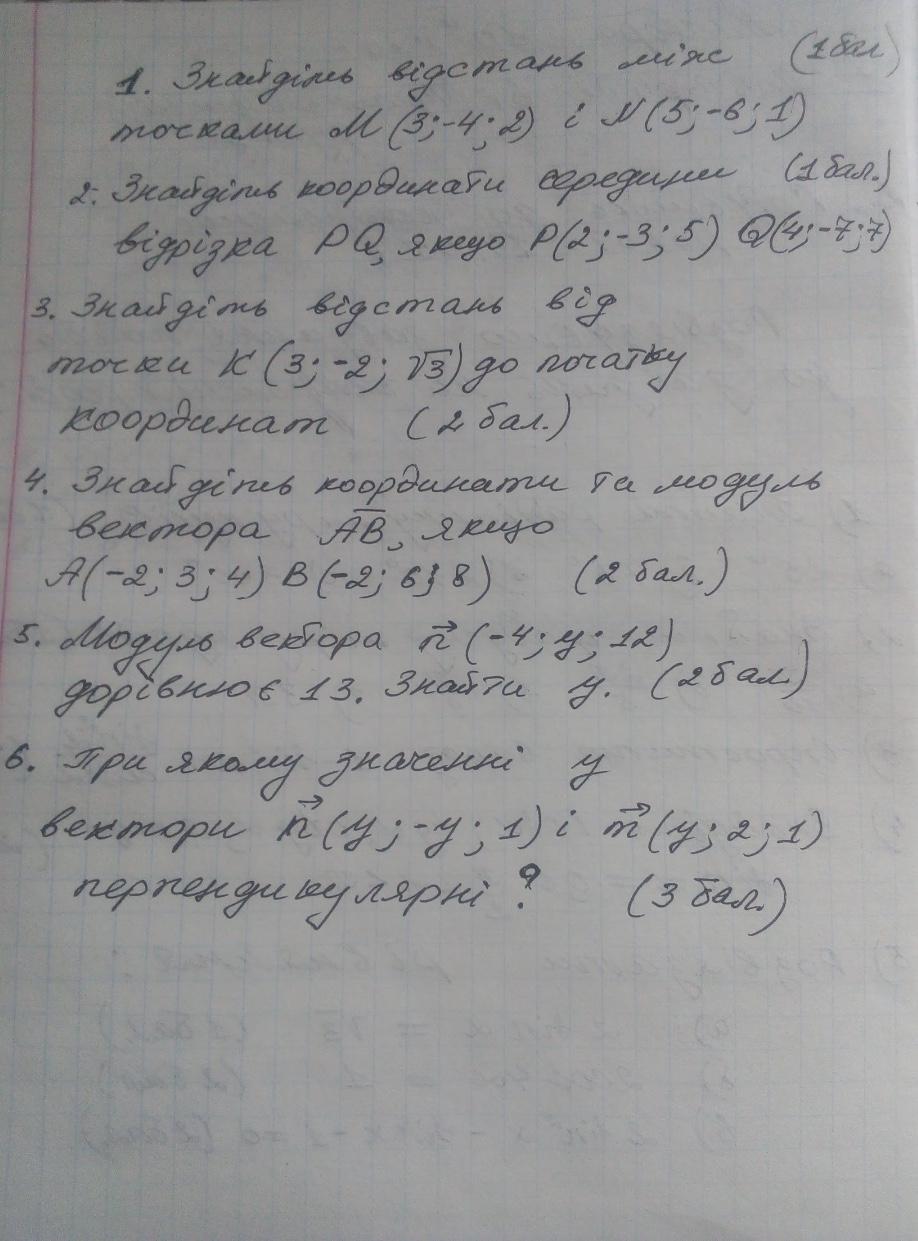 1. Знайдіть відстань між (1 бал)
точками M (3; -4; 2) і N (5; -6; 1)
2. Знайдіть координати середини (1 бал.)
відрізка PQ, якщо P(2; -3; 5) Q(4; -7; 7)
3. Знайдіть відстань від
точки K (3; -2; √3) до початку
координат (2 бал.)
4. Знайдіть координати та модуль
вектора AB, якщо
A(-2; 3; 4) B(-2; 6; 8) (2 бал.)
5. Модуль вектора n (-4; y; 12)
дорівнює 13. Знайти y. (2 бал.)
6. При якому значенні y
вектори n (y; -y; 1) і m (y; 2; 1)
перпендикулярні? (3 бал.)